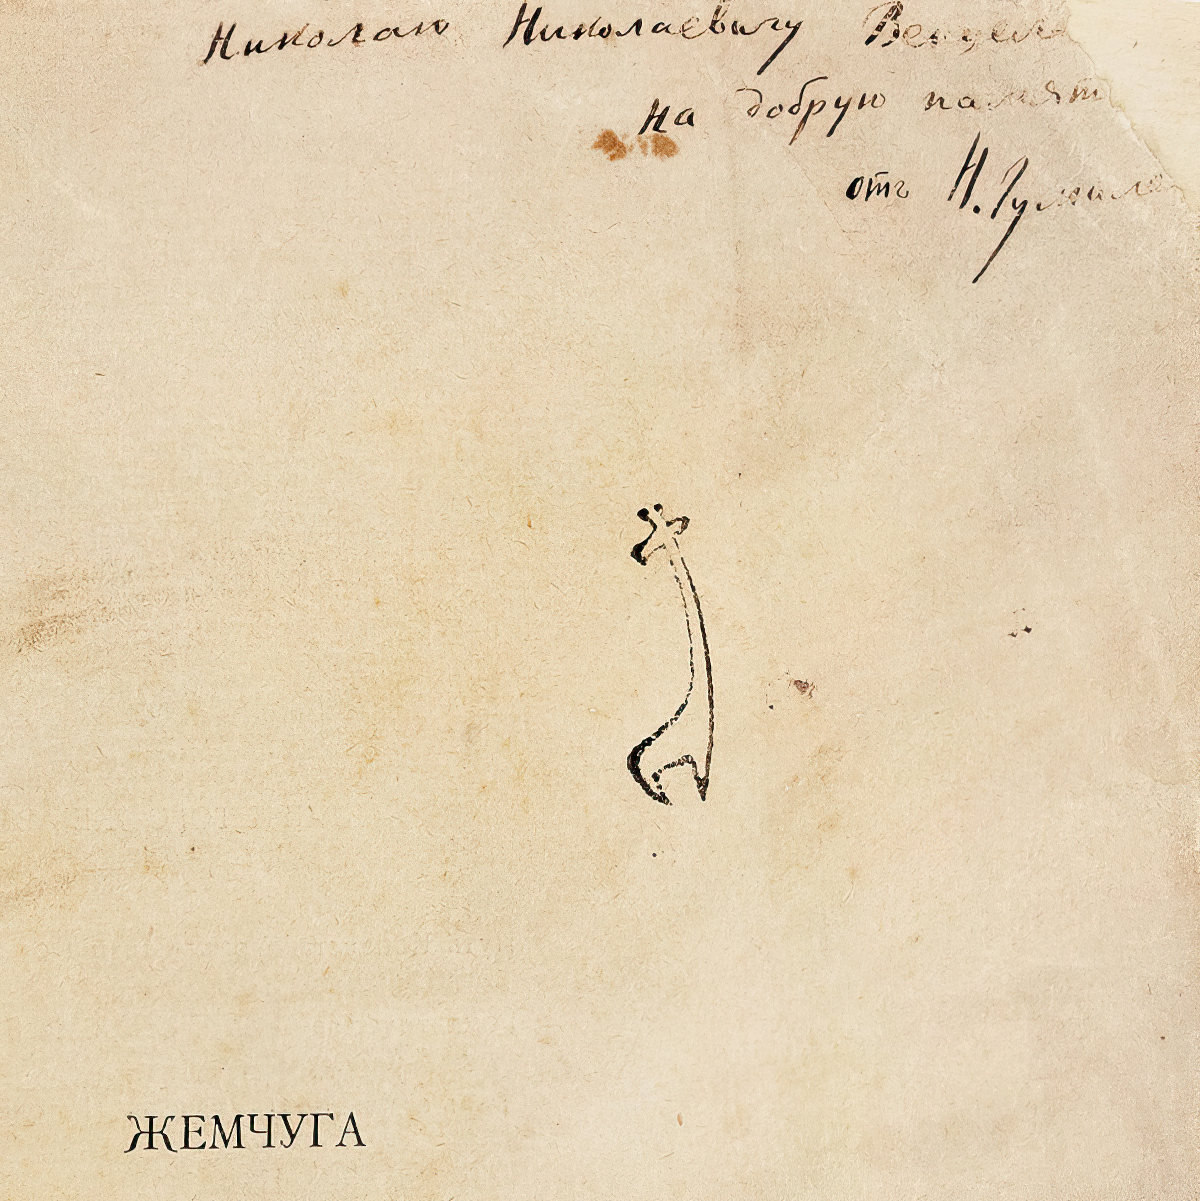 Николаю Николаевичу
на добрую память
отъ Н. Гумилев
ЖЕМЧУГА